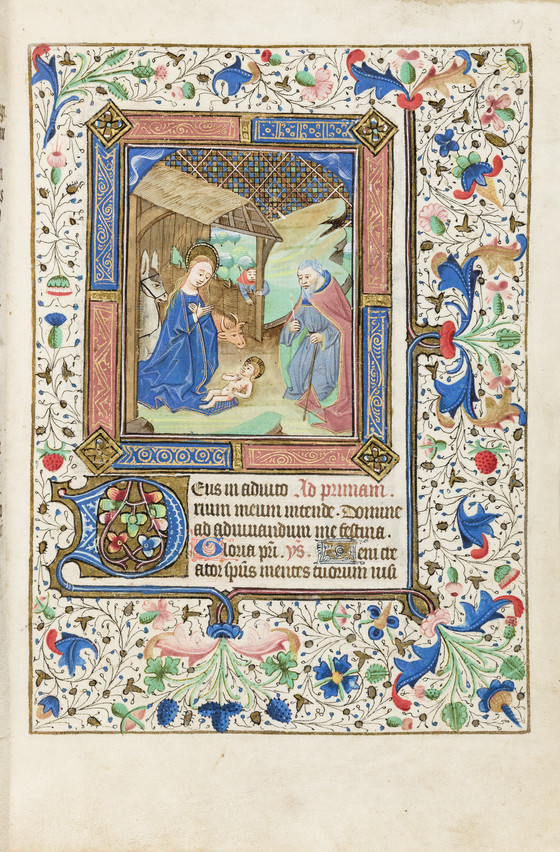 Deus in adiuto Ad primam.
rium meum intende. Domine
ad adiuuandum me festina.
Gloria pri. ys. Veni cre
ator spūs mentes tuorum visi